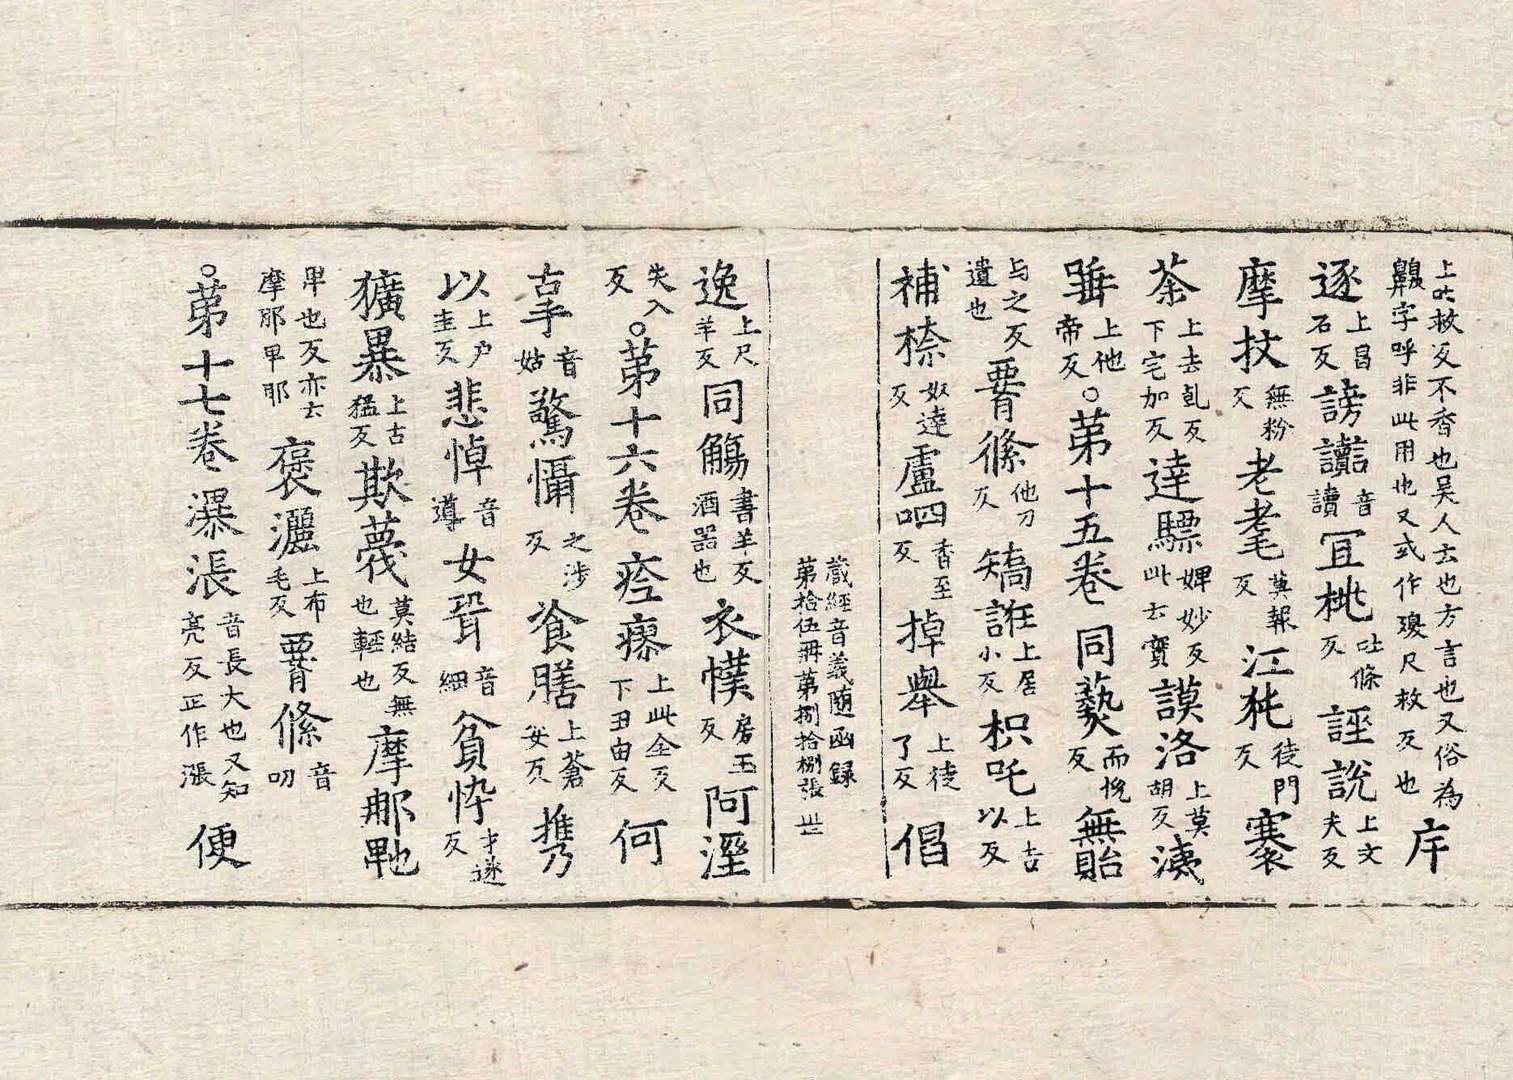 上吐救反不香也吳人云也方言也又俗為齅字呼非此用也又或作𤡇尺救反也 㡿
逐上昌石反 謗讟音讀 罝桃吐條反 誣說上文夫反
摩抆無粉反 老耄莫報反 江㹠徒門反 褰
荼上去乹反下宅加反 達驃婢妙反此云實 謨洛上莫胡反 洟
𨂁上他帝反 。第十五卷 同爇而悅反 無貽
与之反遺也 𦝫絛他刀反 矯誑上居小反 枳吒上吉以反
補㮏奴達反 盧呬香至反 掉舉上徒了反 倡
藏經音義随函録
第拾伍冊第捌拾捌張 丗
逸上尺羊反 同觴書羊反酒器也 衣幞房玉反 阿溼
失入反 。第十六卷 痓瘳上此全反下丑由反 何
辜音姑 驚懾之涉反 飡膳上蒼安反 携乃
以上户圭反 悲悼音導 女壻音細 貧悴才遂反
獷暴上古猛反 欺蔑莫結反無也輕也 摩那𤲞
卑也反亦云摩那卑耶 褒灑上布毛反 𦝫絛音叨
。第十七卷 瀑漲音長大也又知亮反正作漲 便